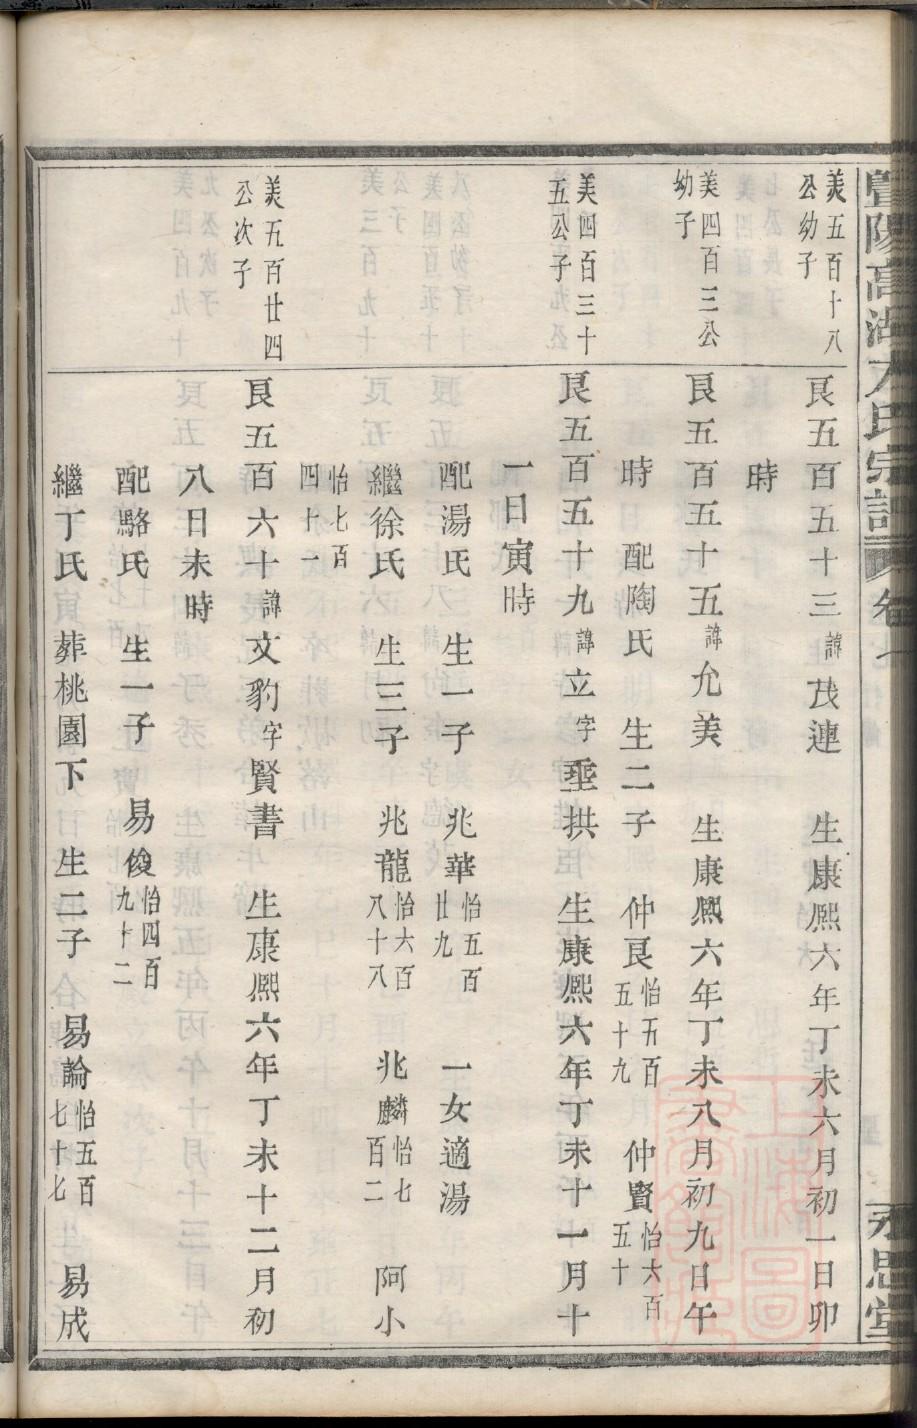 暨陽高湖方氏宗譜 卷七 永思堂
美五百十八
公幼子
艮五百五十三諱茂連 生康熈六年丁未六月初一日卯
時
美四百三公
幼子
艮五百五十五諱允美 生康熈六年丁未八月初九日午
時 配陶氏 生二子 仲艮怡五百五十九 仲賢怡六百五十
美四百三十
五公子
艮五百五十九諱立字垂拱 生康熈六年丁未十一月十
一日寅時
配湯氏 生一子 兆華怡五百廿九 一女適湯
繼徐氏 生三子 兆龍怡六百八十八 兆麟怡七百二 阿小
怡七百四十一
美五百廿四
公次子
艮五百六十諱文豹字賢書 生康熈六年丁未十二月初
八日未時
配駱氏 生一子 易俊怡四百九十二
繼丁氏 葬桃園下 生二子 易論怡五百七十七 易成